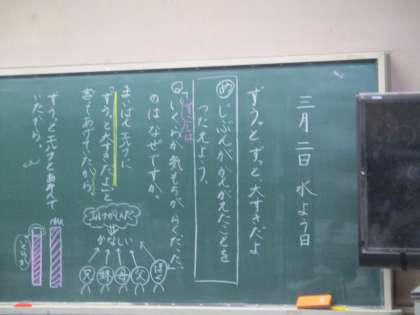 三月二日 水よう日
ずうっと、ずっと、大すきだよ
め じぶんがかんがえたことを
つたえよう。
いくらか気もちがらくだった」
のはなぜですか。
まいばんエルフに
「ずうっと、大すきだよ」と
言ってあげていたから。
ずうっとエルフとあそんで
いたから。
かなしい
ぼく
父
母
妹
兄